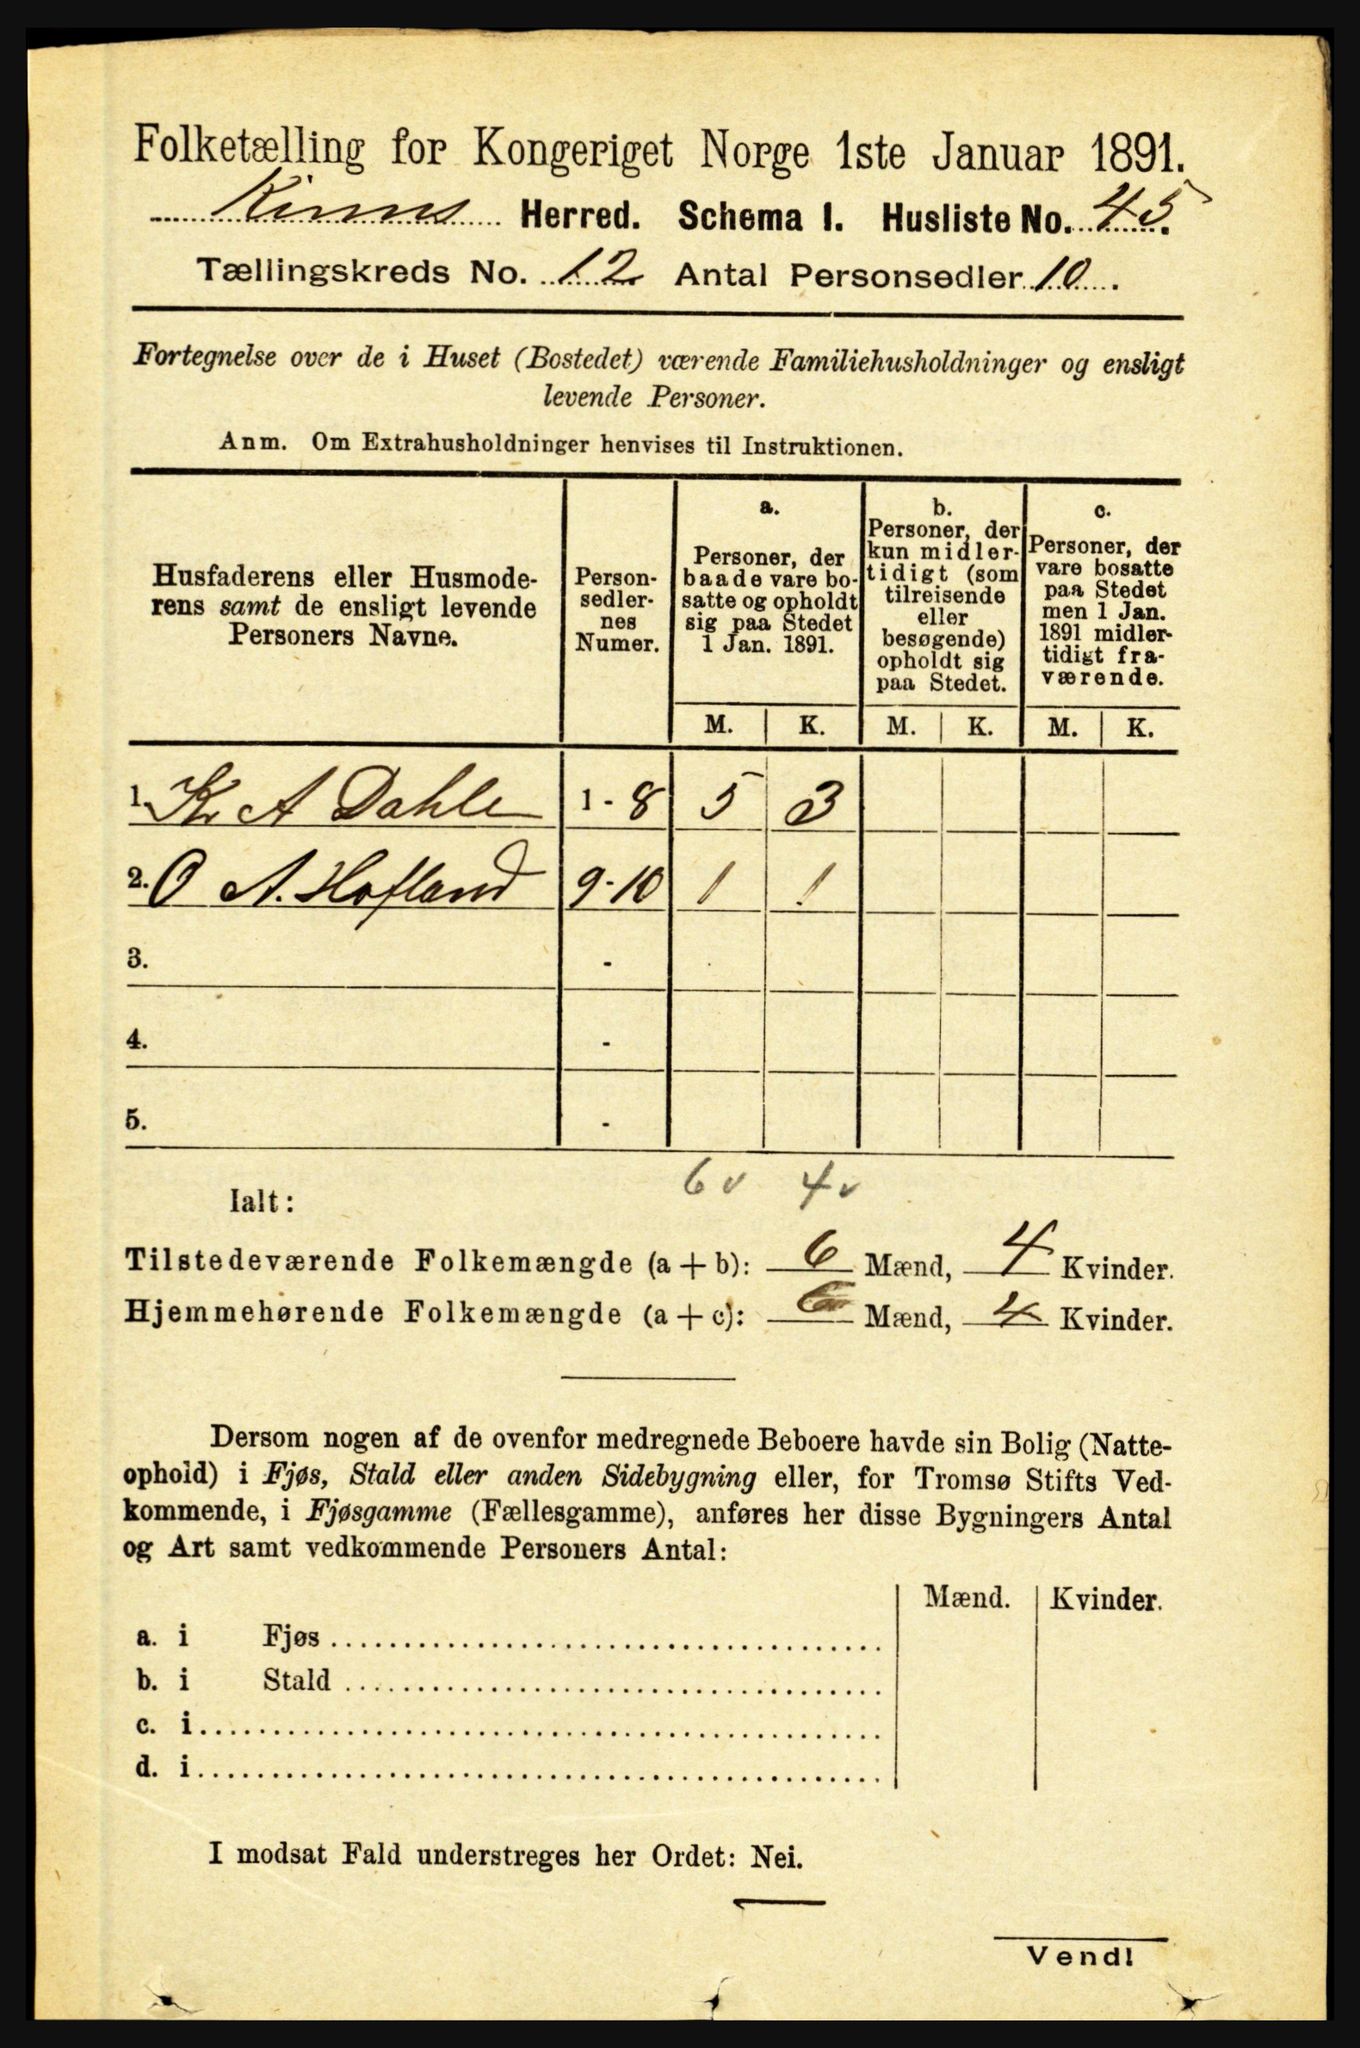 Folketælling for Kongeriget Norge 1ste Januar 1891.
Kinns Herred. Schema I. Husliste No. 45.
Tællingskreds No. 12. Antal Personsedler 10.
Fortegnelse over de i Huset (Bostedet) værende Familiehusholdninger og ensligt
levende Personer.
Anm. Om Extrahusholdninger henvises til Instruktionen.
Husfaderens eller Husmode-
rens samt de ensligt levende
Personers Navne.
Person-
sedler-
nes
Numer.
a.
Personer, der
baade vare bo-
satte og opholdt
sig paa Stedet
1 Jan. 1891.
b.
Personer, der
kun midler-
tidigt (som
tilreisende
eller
besøgende)
opholdt sig
paa Stedet.
c.
Personer, der
vare bosatte
paa Stedet
men 1 Jan.
1891 midler-
tidigt fra-
værende.
M. K. M. K. M. K.
1. Kr A Dahle 1 - 8 5 3
2. O A. Hofland 9-10 1 1
3. -
4. -
5. -
6 v 4 v
Ialt:
Tilstedeværende Folkemængde (a + b): 6 Mænd, 4 Kvinder.
Hjemmehørende Folkemængde (a + c): 6 Mænd, 4 Kvinder.
Dersom nogen af de ovenfor medregnede Beboere havde sin Bolig (Natte-
ophold) i Fjøs, Stald eller anden Sidebygning eller, for Tromsø Stifts Ved-
kommende, i Fjøsgamme (Fællesgamme), anføres her disse Bygningers Antal
og Art samt vedkommende Personers Antal:
Mænd. Kvinder.
a. i Fjøs
b. i Stald
c. i
d. i
I modsat Fald understreges her Ordet: Nei.
Vend!